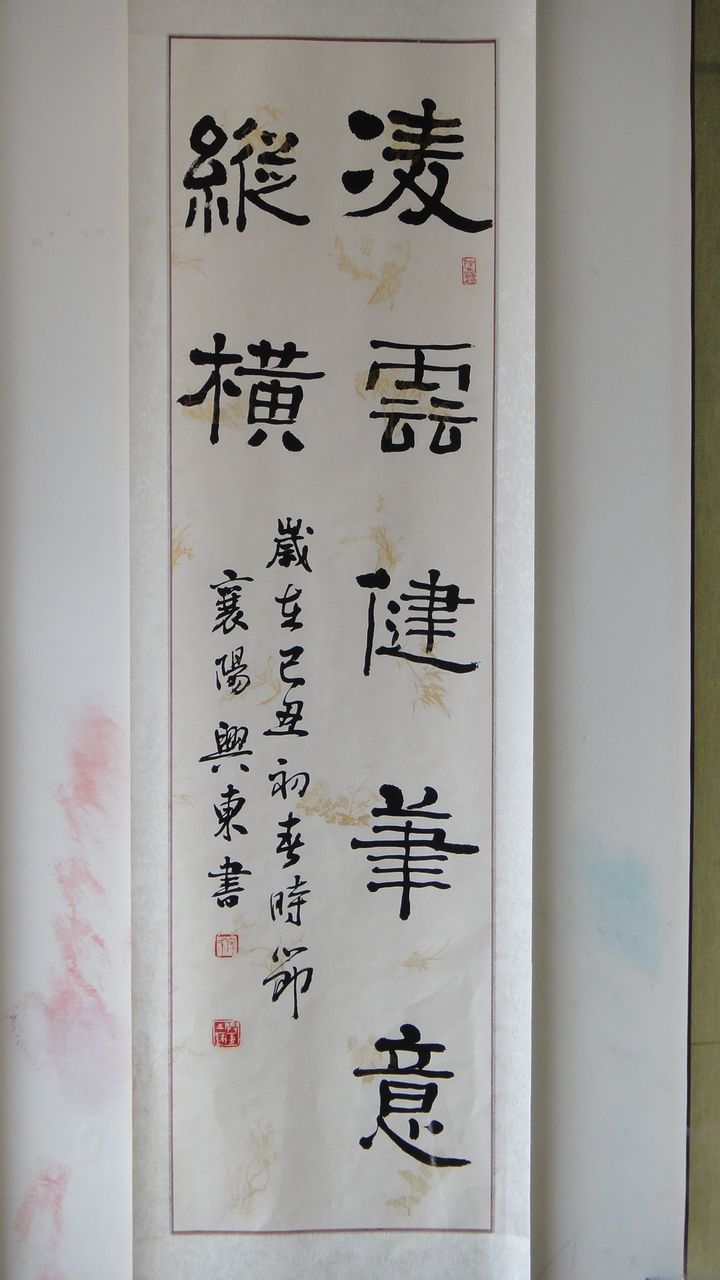 凌雲健筆意
縱橫
歲在己丑初春時節
襄陽興東書